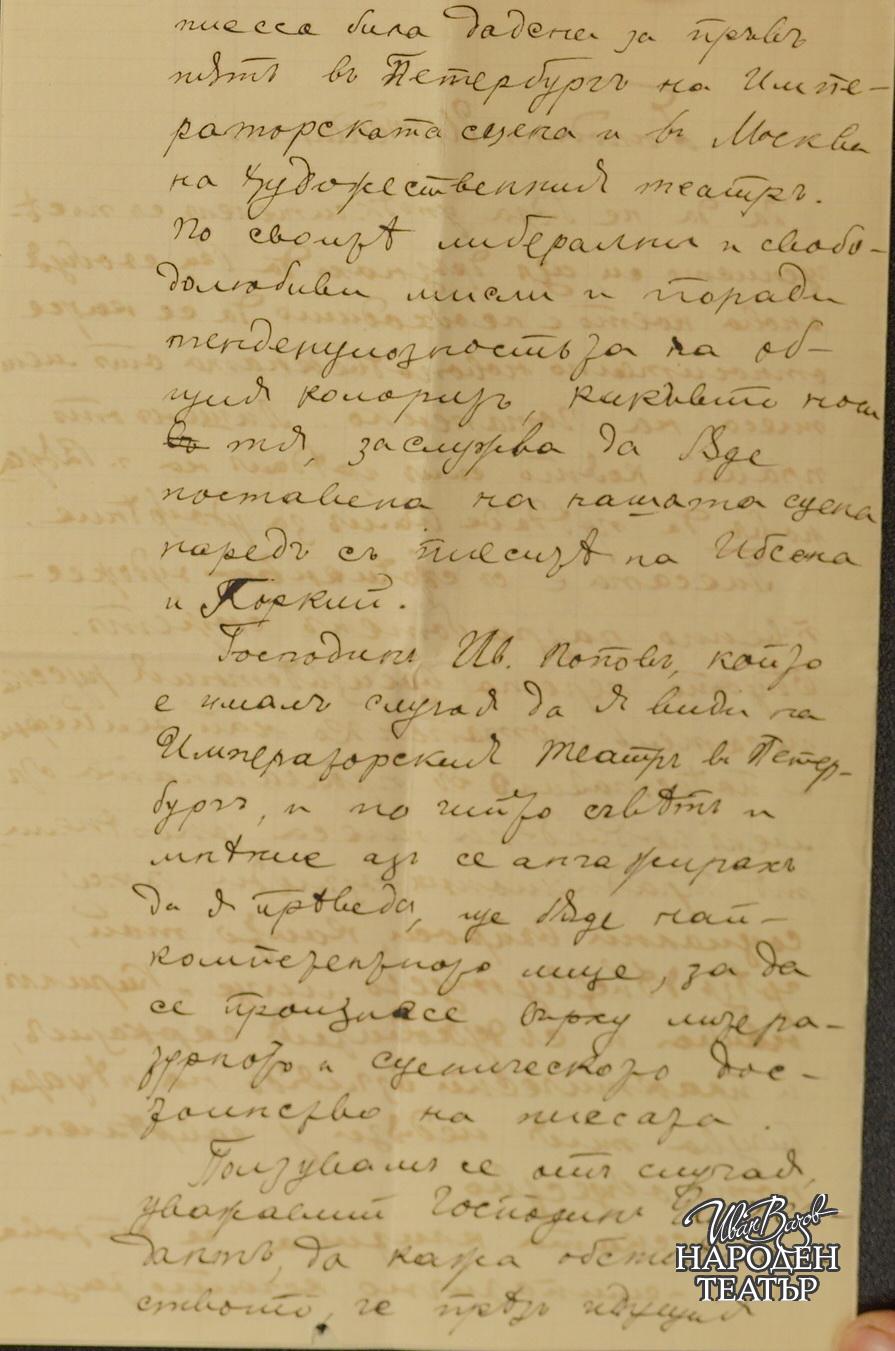 пиеса била дадена за пръвъ
пѫть въ Петербургъ на Импе-
раторската сцена и въ Москва
на Художествения театръ.
По своитѣ либерални и свобо-
долюбиви мисли и поради
тенденциозностьта на об-
щия колоритъ, какъвто носи
въ тя, заслужва да бѫде
поставена на нашата сцена
наредъ съ пиеситѣ на Ибсена
и Горкий.
Господинъ Ив. Поповъ, който
е ималъ случая да я види на
Императорския театръ въ Петер-
бургъ, и по чийто съвѣтъ и
мнѣние азъ се ангажирахъ
да я прѣведа, ще бѫде най-
компетентното лице, за да
се произнесе върху литера-
турното и сценическото дос-
тоинство на пиесата.
Ползувамъ се отъ случая,
уважаемий Господинъ
дантъ, да кажа
ството, че прѣзъ идущия
Иван Вазов
НАРОДЕН
ТЕАТЪР